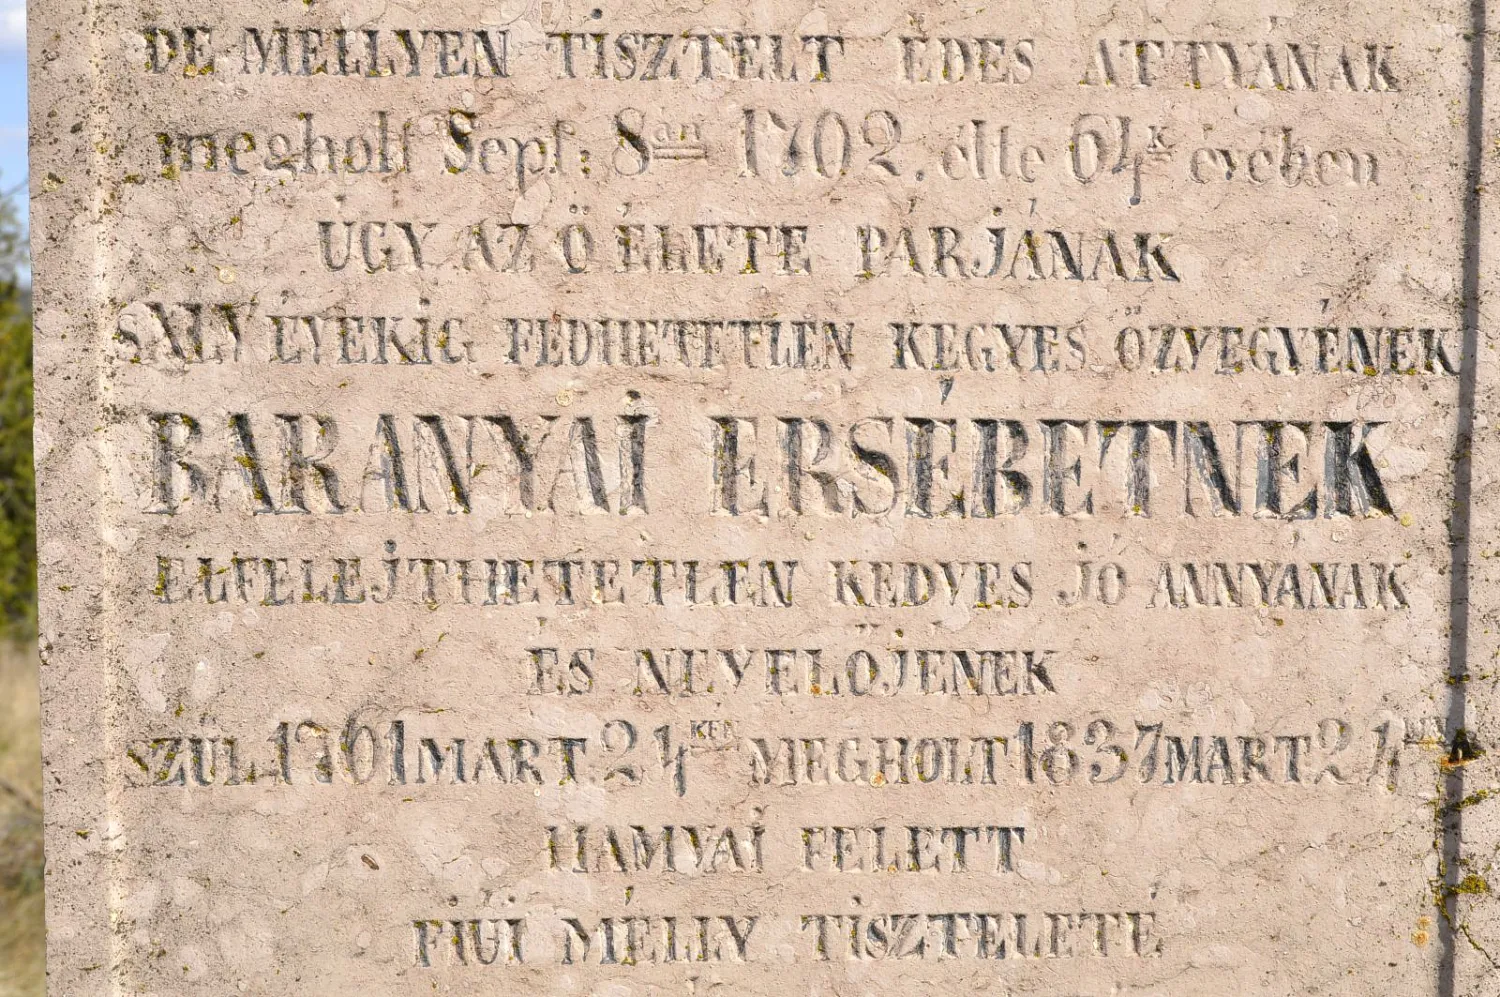 DE MELLYEN TISZTELT ÉDES ATTYÁNAK
megholt Sept: 8án 1702. élte 64k évében
ÚGY AZ Ő ÉLETE PÁRJÁNAK
SÁLY ÉVEKIG FEDHETETLEN KEGYES ÖZVEGYÉNEK
BARANYAI ERSÉBETNEK
ELFELEJTHETETLEN KEDVES JÓ ANNYÁNAK
ÉS NEVELŐJÉNEK
SZÜL 1761 MART 24KÉN MEGHOLT 1837 MART 21
HAMVAI FELETT
FIÚI MÉLLY TISZTELETÉ